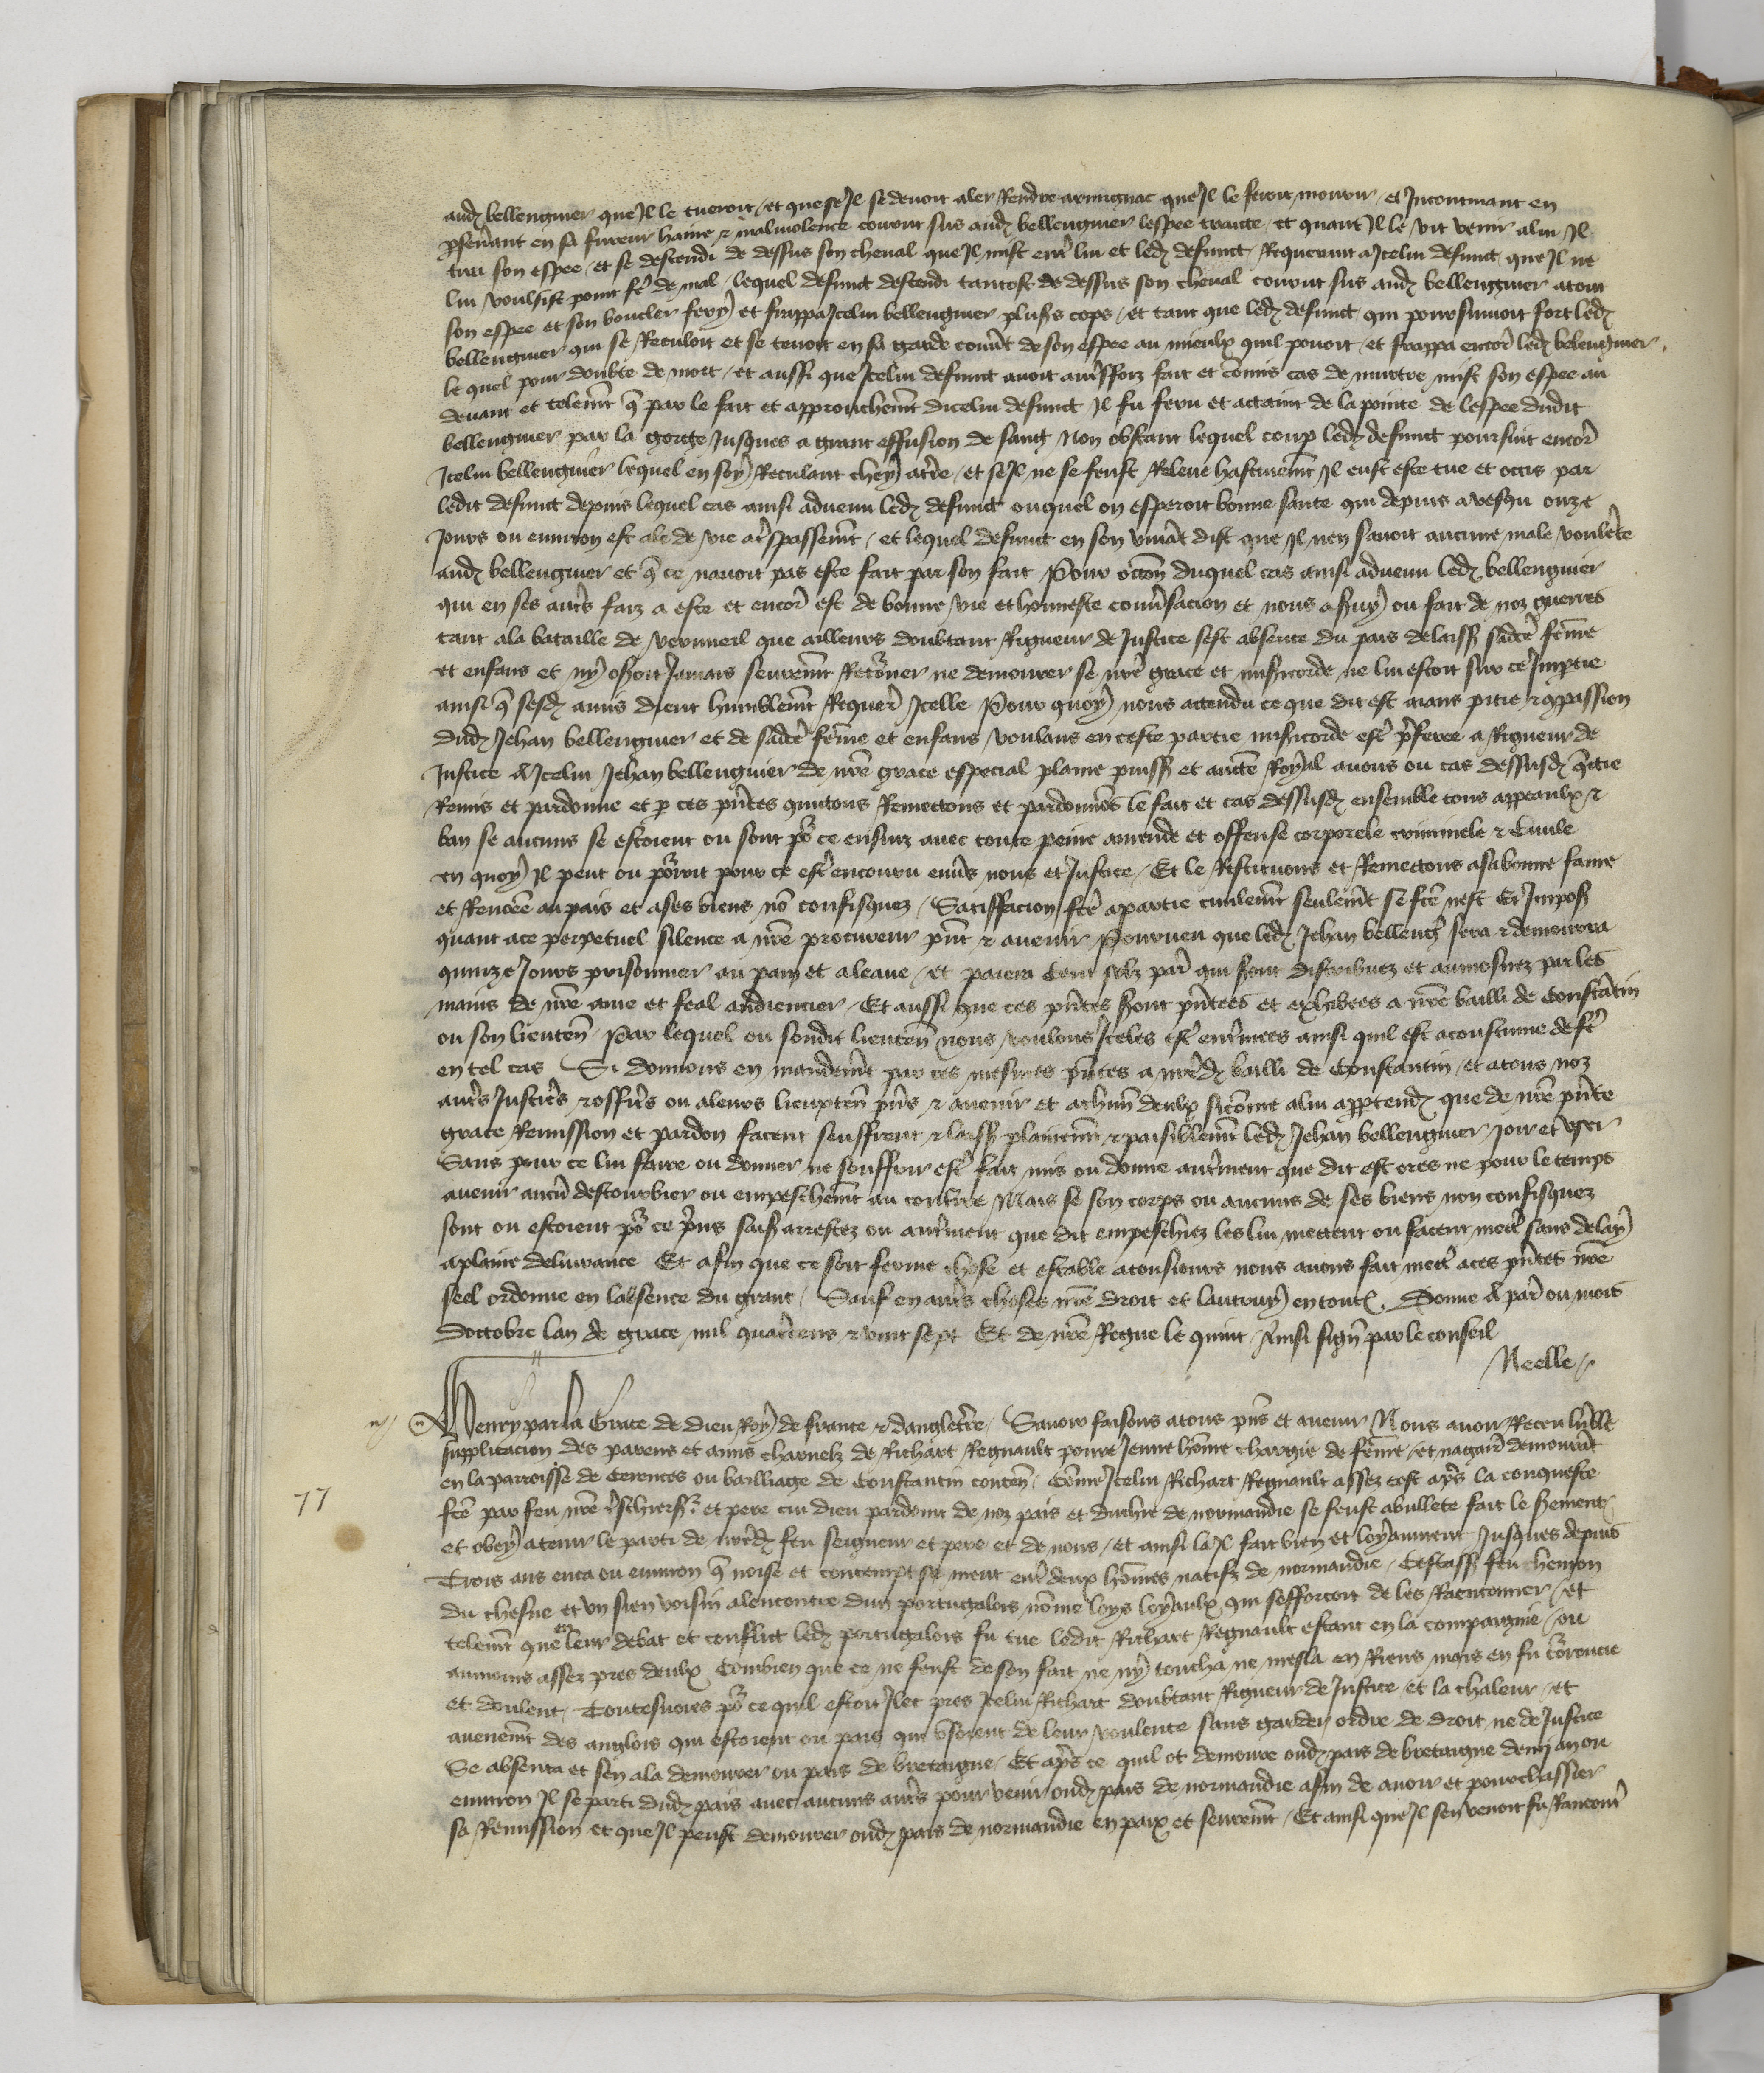 aud bellenguier que Il le tueroit / et que se Il se devoit aler Rendre armignac que Il le feroit mourir / et Incontinant en
pseuerant en sa fureur haine & maliuolence couru sus aud bellenguier lespee traicte / et quant Il le vit venir a lui Il
tira son espee / et se descendi de dessus son cheual que Il mist entre lui et led defunct / Requerant a Icelui defunct que Il ne
lui voulsist point fe de mal / lequel defunct descendi tantost de dessus son cheual courut sus aud bellenguier atout
son espee et son boucler fery et frappa Icelui bellenguier plusrs cops / et tant que led defunct qui poursuiuoit fort led
bellenguier qui se Reculoit et se tenoit en sa garde couut de son espee au mieulx quil pouoit / et frappa encor led belenguier
le quel pour doubte de mort / et aussi que Icelui defunct auoit autsfoiz fait et comis cas de murtre mist son espee au
deuant et telemt q par le fait et approuchemt dicelui defunct Il fu feru et actaint de la pointe de lespee dudit
bellenguier par la gorge Jusques a grant effusion de sang Non obstant lequel coup led defunct poursuit encor
Icelui bellenguier lequel en soy Reculant chey atre / et se Il ne se feust Releue hastiuemt Il eust este tue et occis par
ledit defunct depuis lequel cas ainsi aduenu led defunct ouquel on esperoit bonne sante qui depuis a vesqu onze
Jours ou enuiron est ale de vie a trspassemt / et lequel defunct en son viuat dist que Il nen sauoit aucune male voulete
aud bellenguier et q ce nauoit pas este fait par son fait Pour occon duquel cas ainsi aduenu led bellenguier
qui en ses autrs faiz a este et encor est de bonne vie et honneste conusacion et nous a suy ou fait de noz guerres
tant a la bataille de vernueil que ailleurs doubtant Rigueur de Justice sest absente du pais delaiss sadce feme
et enfans et ny oseroit Jamais seuremt Retorner ne demourer se nre grace et misericorde ne lui estoit sur ce Imptie
ainsi q sesd amis dient humblemt Requer Icelle Pour quoy nous attendu ce que dit est aians pitie & opassion
dud Jehan bellenguier et de sadce feme et enfans / voulans en ceste partie misericorde est prferee a Rigueur de
Justice A Icelui Jehan bellenguier de nre grace especial plaine puiss et aucte Royal auons ou cas dessusd qictie
Remis et pardonne et p ces pntes quictons Remectons et pardonnos le fait et cas dessusd ensemble tous appeaulx &
ban se aucuns se estoient ou sont po ce ensuiz auec toute peine amende et offense corporele criminele & Ciuile
en quoy Il peut ou porroit pour ce est encouru enus nous et Justice / Et le Restituons et Remectons a sa bonne fame
et Renoee au pais et a ses biens no confisquez / Satisfacion fte a partie ciuilemt seulemt se fte nest Et Impos
quant a ce perpetuel silence a nre procureur pnt & auenir Pourueu que led Jehan belleng sera & demourra
quinze Jours prisonnier au pain et a leaue / et paiera Cent solz par qui seront distribuez et aumosnez par les
mains de nre ame et feal audiencier / Et aussi que ces pntes seront pntees et exhibees a nre bailli de Constatin
ou son lieuten / Par lequel ou sondit lieuten nous voulons Iceles est entrinees ainsi quil est acoustume de fe
en tel cas Si donnons en mandemt par ces mesmes pntes a nred bailli de Constantin / et a tous noz
autrs Justicrs & officrs ou a leurs lieuxten pns & auenir et a chun deulx sicome a lui apptend que de nre pnte
grace Remission et pardon facent seuffrent & laiss plainemt & paisiblemt led Jehan bellenguier Joir et vser
Sans pour ce lui faire ou donner ne souffrir est fait mis ou donne autrment que dit est ores ne pour le temps
auenir aucu destourbier ou empeschemt au contre Mais se son corps ou aucuns de ses biens non confisquez
sont ou estoient po ce prins saisiz arrestez ou autrment que dit empeschiez les lui mettent ou facent mect sans delay
a plaine deliurance Et afin que ce soit ferme chose et estable a tousiours nous auons fait mect a ces pntes nre
seel ordonne en labsence du grant / Sauf en autrs choses nre droit et lautruy en tout / Donne A par ou mois
doctobre lan de grace mil quatcens & vint sept Et de nre Regne le quint / Ainsi sign par le conseil
Neelle
Henry par la Grace de Dieu Roy de france & dangletre / Sauoir faisons a tous pns et auenir Nous auoir Receu lumble
supplicacion des parens et amis charnelz de Richart Regnault poure Jeune home chargie de feme / et nagair demourat
en la parroisse de Cerences ou bailliage de Constantin conten / Come Icelui Richart Regnault assez tost aprs la conqueste
fte par feu nre tschiersr et pere cui dieu pardoint de noz pais et duchie de normandie se feust abullete fait le serment
et obey a tenir le parti de nred feu seigneur et pere et de nous / et ainsi la Il fait bien et loyaument Jusques depuis
Trois ans enca ou enuiron q noise et contempt se meut ent deux homes natifz de normandie / Cestass feu chenon
du chesne et vn sien voisin alencontre dun portugalois nome loys loyaulx qui sefforcoit de les Raenconner / et
telemt que en leur debat et conflict led portugalois fu tue ledit Richart Regnault estant en la compaignie / ou
aumoins assez pres deulx Combien que ce ne feust de son fait ne ny toucha ne mesla en Riens mais en fu corroucie
et doulent / Toutesuoies po ce quil estoit Ilec pres Icelui Richart doubtant Rigueur de Justice / et la chaleur / et
auenemt des anglois qui estoient ou pais qui vsoient de leur voulente sans garder ordre de droit ne de Justice
Se absenta et sen ala demourer ou pais de bretaigne / Et aprs ce quil ot demoure oud pais de bretaigne demi an ou
enuiron Il se parti dud pais auec aucuns autrs pour venir oud pais de normandie afin de auoir et pourchassier
sa Remission et que Il peust demourer oud pais de normandie en paix et seuremt / Et ainsi que Il sen venoit fu Rancontr
77